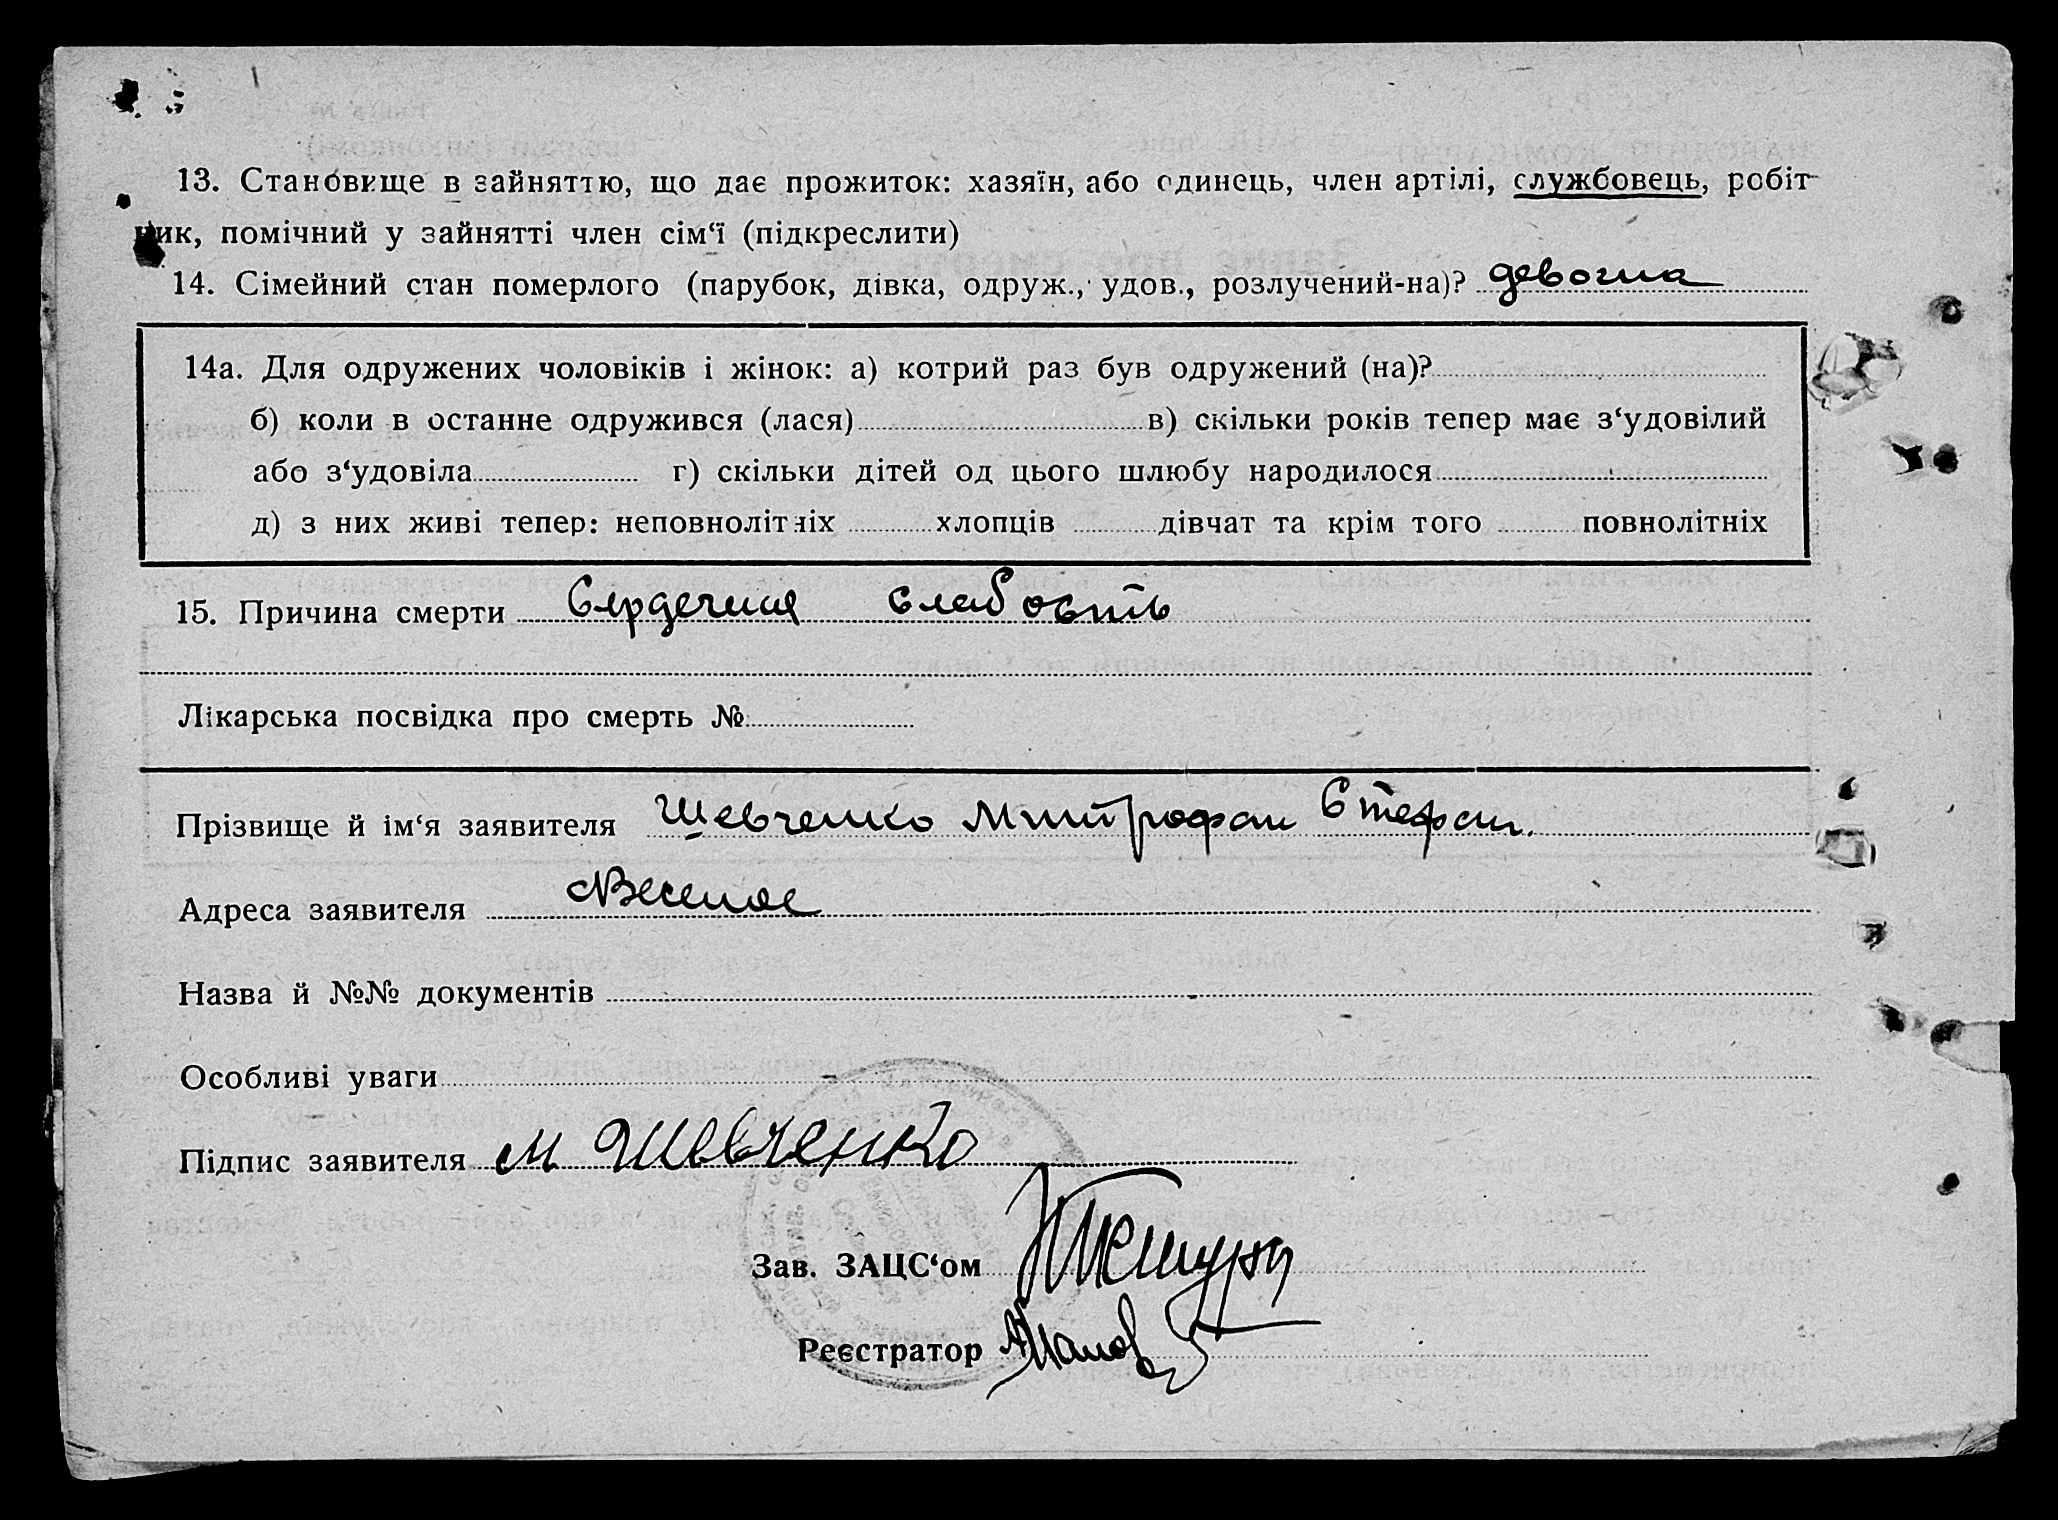 13. Становище в зайняттю, що дає прожиток: хазяїн, або одинець, член артілі, службовець, робіт-
ник, помічний у зайнятті член сім‘ї (підкреслити)
14. Сімейний стан померлого (парубок, дівка, одруж., удов., розлучений-на)? девочка
14а. Для одружених чоловіків і жінок: а) котрий раз був одружений (на)?
б) коли в останне одружився (лася) в) скільки років тепер має з‘удовілий
або з‘удовіла г) скільки дітей од цього шлюбу народилося
д) з них живі тепер: неповнолітніх хлопців дівчат та крім того повнолітніх
15. Причина смерти Сердечная слабость
Лікарська посвідка про смерть №
Прізвище й ім‘я заявителя Шевченко Митрофан Стефан.
Адреса заявителя Веселое
Назва й №№ документів
Особливі уваги
Підпис заявителя М Шевченко
Зав. ЗАЦС‘ом
Реєстратор